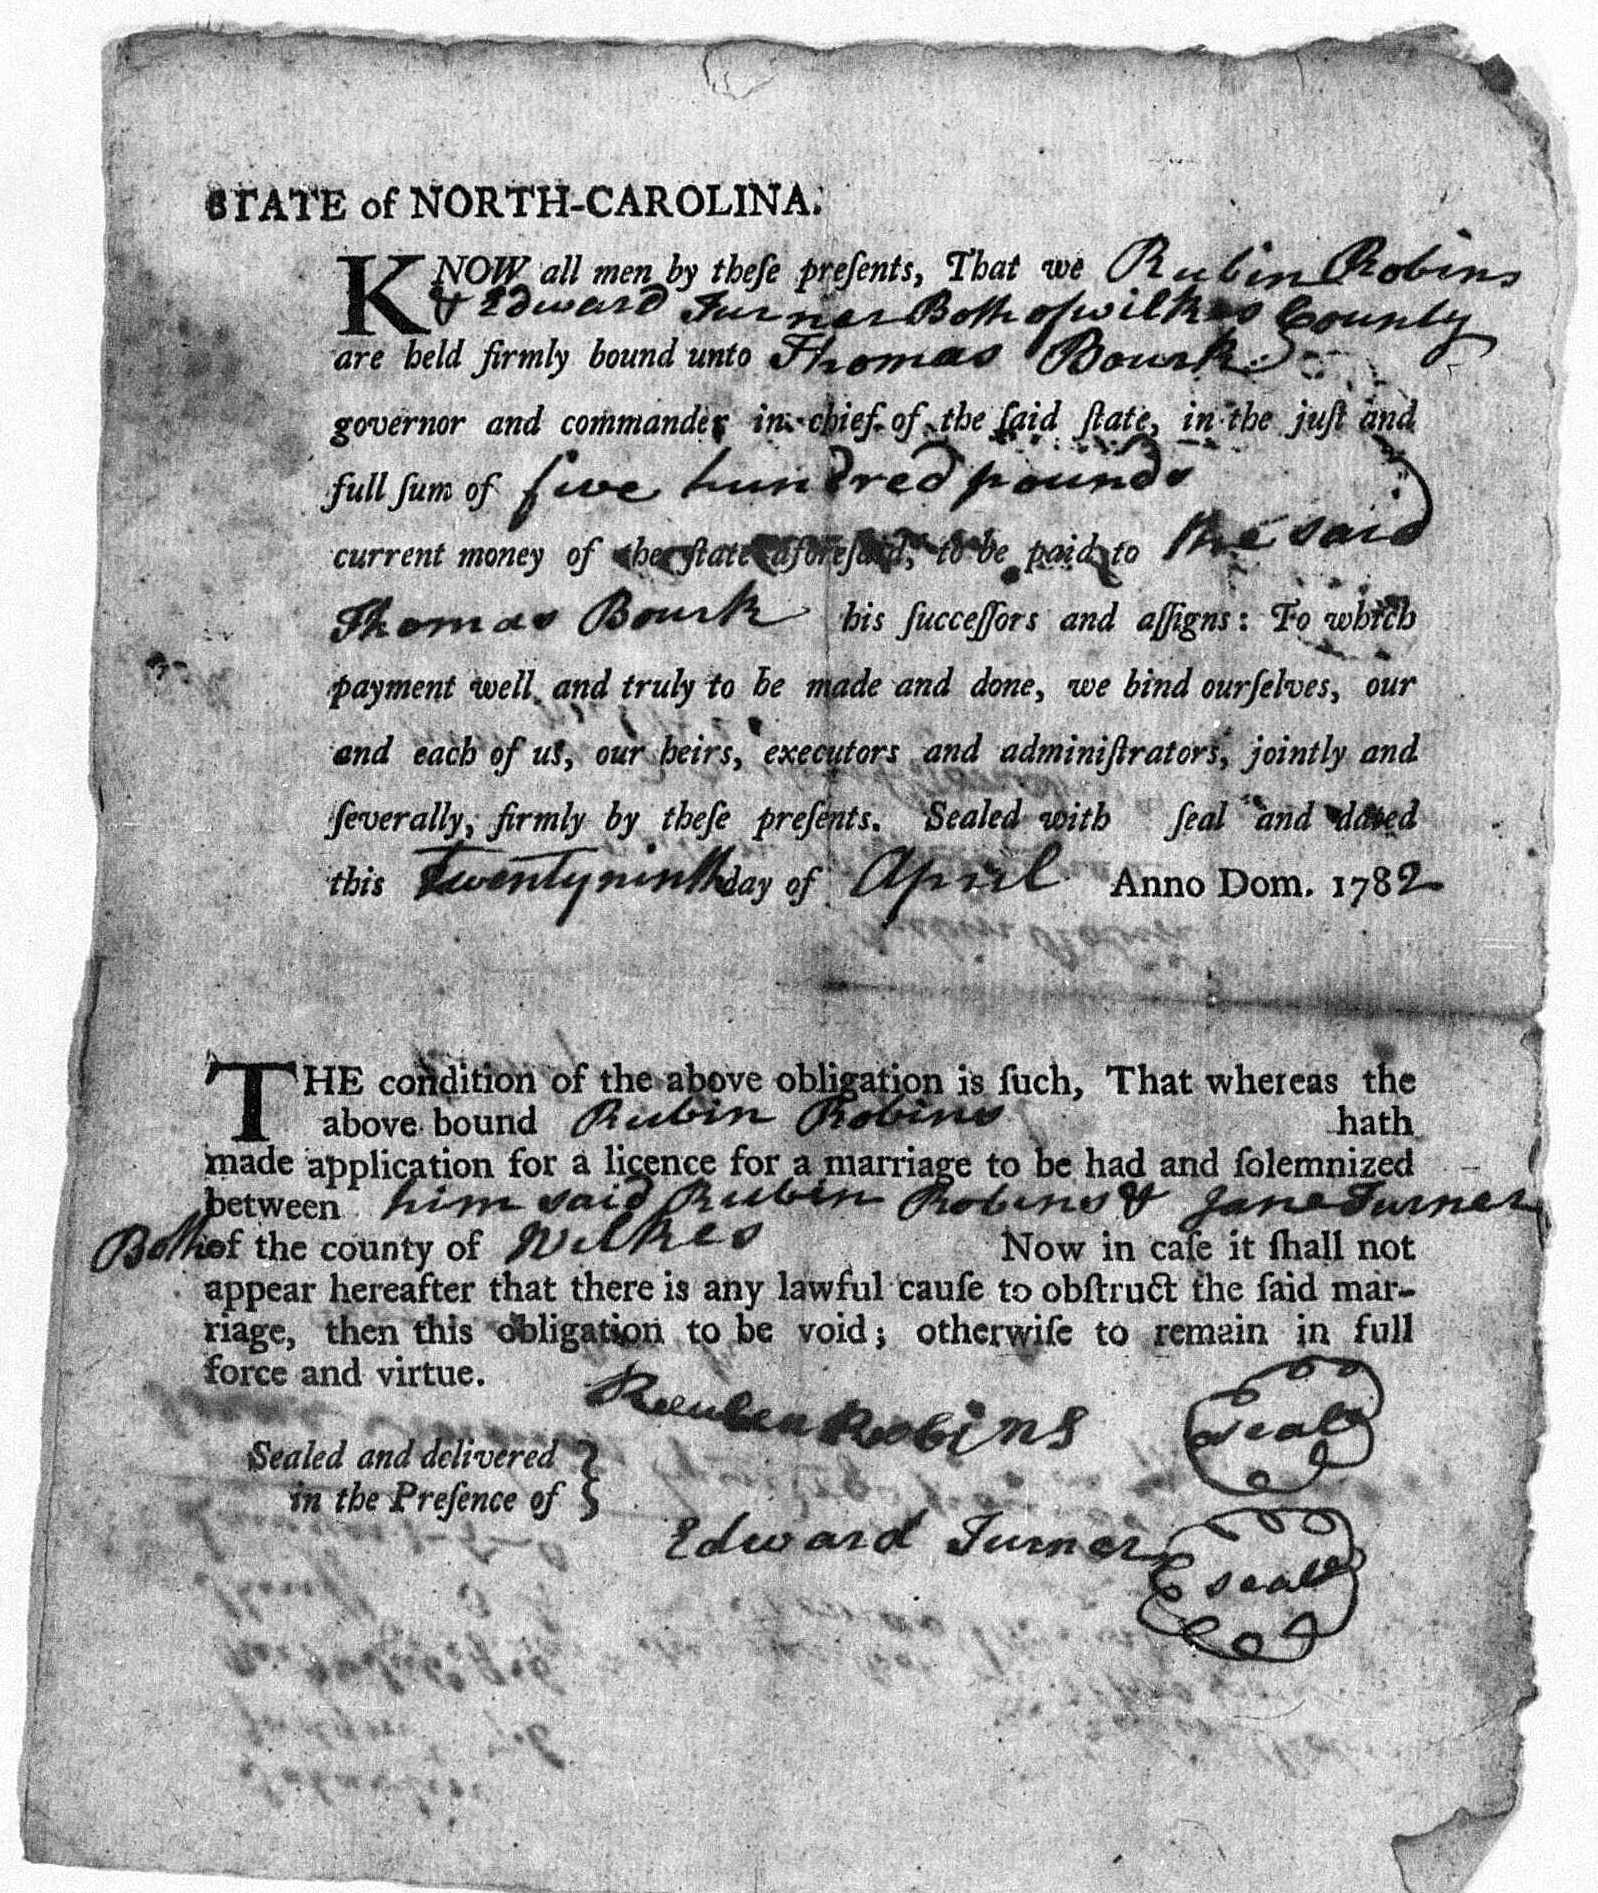 STATE of NORTH-CAROLINA.
KNOW all men by theſe preſents, That we Rubin Robins
& Edward Turner Both of wilkes County
are held firmly bound unto Thomas Bourk
governor and commander in chief of the ſaid ſtate, in the juſt and
full ſum of five hundred pounds
current money of the ſtate aforeſaid, to be paid to the said
Thomas Bourk his ſucceſſors and aſſigns: To which
payment well and truly to be made and done, we bind ourſelves, our
and each of us, our heirs, executors and adminiſtrators, jointly and
ſeverally, firmly by theſe preſents. Sealed with ſeal and dated
this Twentyninth day of April Anno Dom. 1782
THE condition of the above obligation is ſuch, That whereas the
above bound Rubin Robins hath
made application for a licence for a marriage to be had and ſolemnized
between him said Rubin Robins & Jane Turner
Both of the county of Wilkes Now in caſe it ſhall not
appear hereafter that there is any lawful cauſe to obſtruct the ſaid mar-
riage, then this obligation to be void; otherwiſe to remain in full
force and virtue.
Reuben Robins seal
Sealed and delivered
in the Preſence of
Edward Turner seal